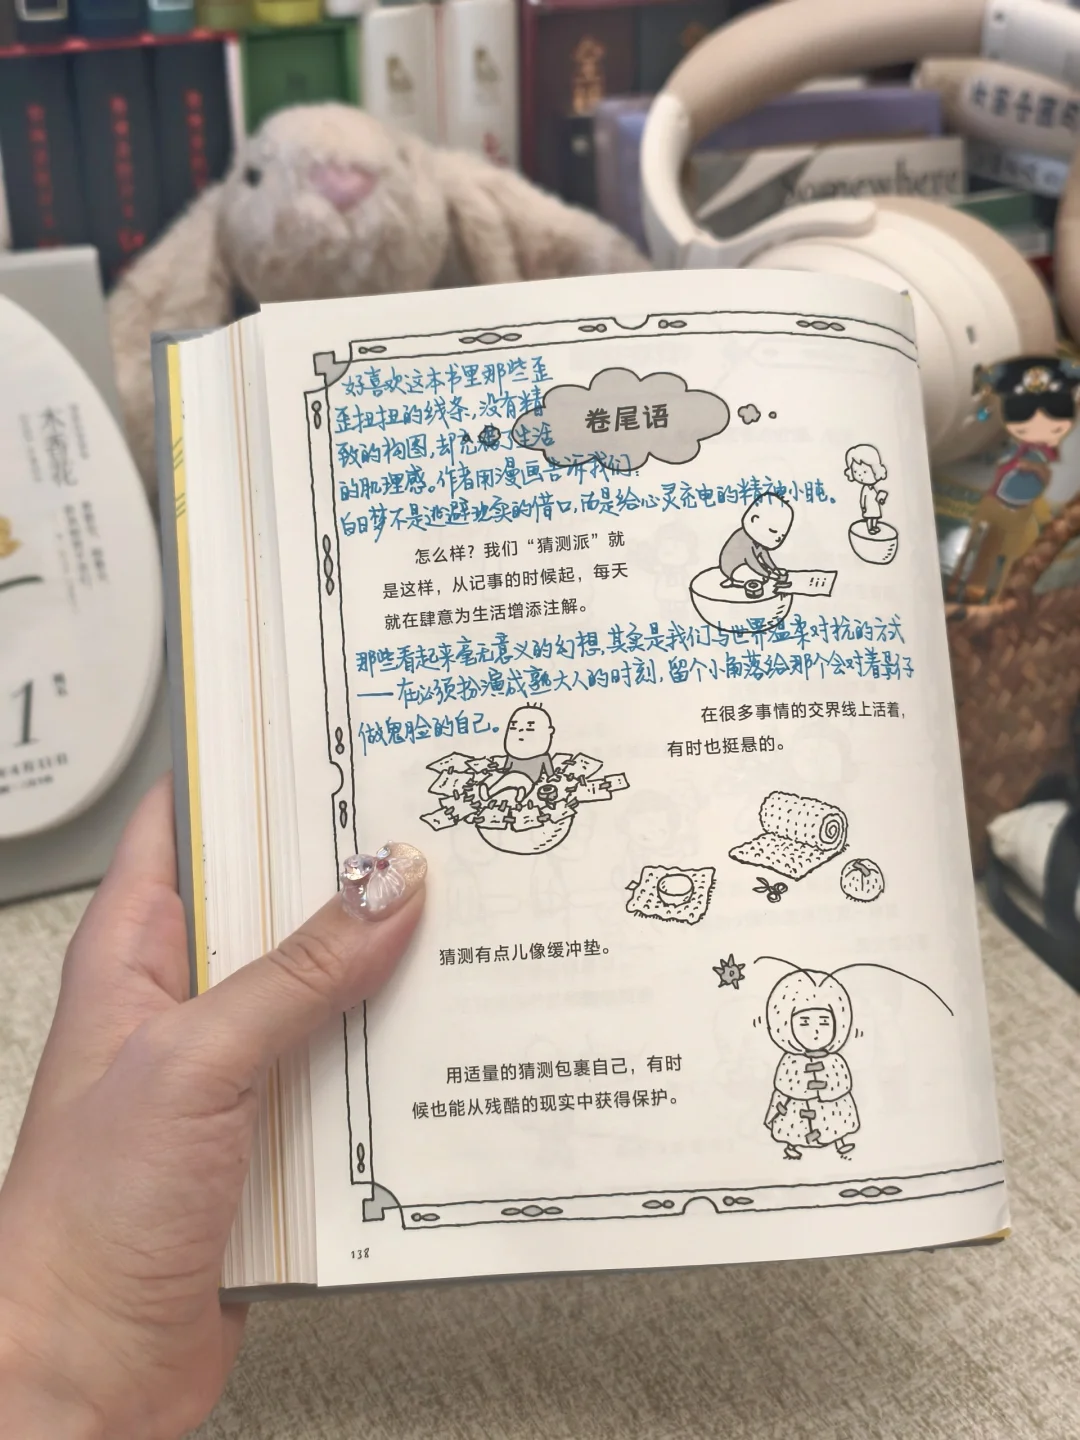 Somewhere
水香花
1
好喜欢这本书里那些歪
歪扭扭的线条,没有精
致的构图,却充满了生活
的肌理感。作者用漫画告诉我们:
白日梦不是逃避现实的借口,而是给心灵充电的精神小盹。
卷尾语
怎么样?我们“猜测派”就
是这样,从记事的时候起,每天
就在肆意为生活增添注解。
那些看起来毫无意义的幻想,其实是我们与世界温柔对抗的方式
——在必须扮演成熟大人的时刻,留个小角落给那个会对着影子
做鬼脸的自己。
在很多事情的交界线上活着,
有时也挺悬的。
猜测有点儿像缓冲垫。
用适量的猜测包裹自己,有时
候也能从残酷的现实中获得保护。
138